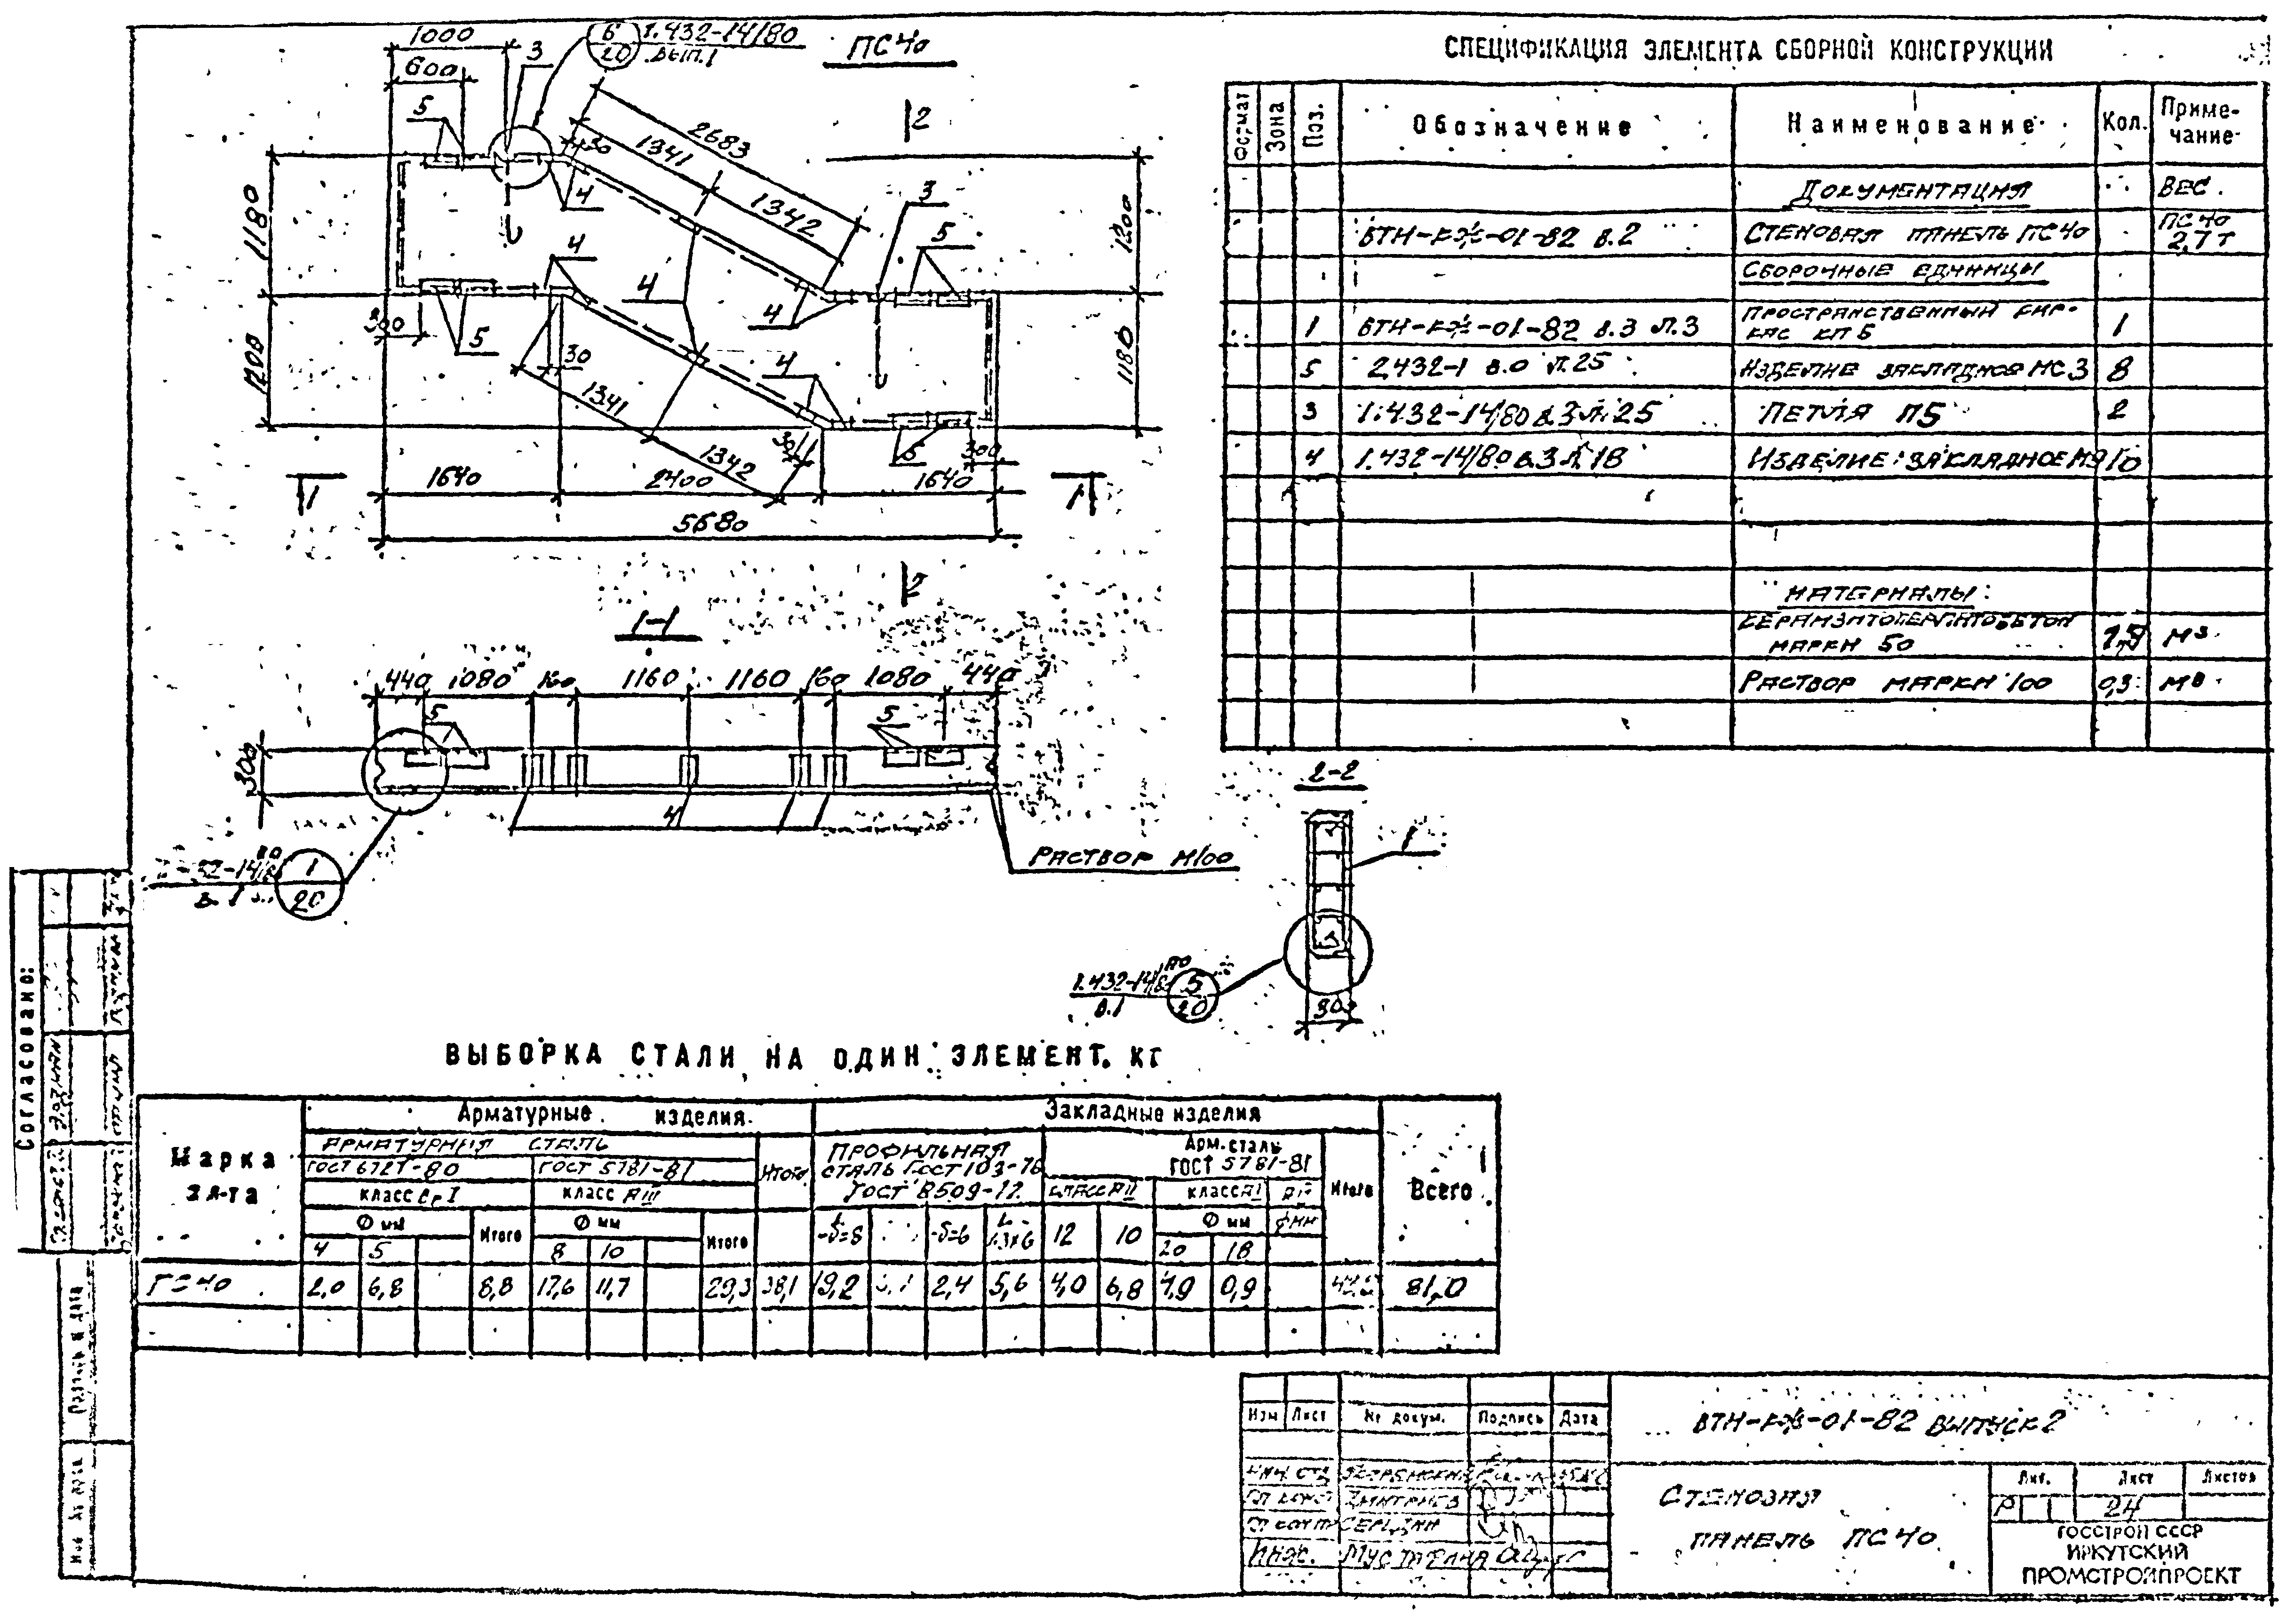 1000
600
3
6
20
1.432-14/80
вып.1
ПС 40
5
30
2683
1341
1342
4
3
5
2
1180
1200
1200
1180
4
4
4
300
5
30
1341
1342
4
30
5
300
1
1640
2400
1640
1
5680
2
1-1
440 1080 160 1160 1160 160 1080 440
5
5
300
4
Раствор М100
1
20
2-2
1
1.432-14/80
в.1
5
20
СПЕЦИФИКАЦИЯ ЭЛЕМЕНТА СБОРНОЙ КОНСТРУКЦИИ
Формат Зона Поз. Обозначение Наименование Кол. Примечание
Документация Вес.
ВТН-КЖ-01-82 в.2 Стеновая панель ПС40 ПС40 2,7т
Сборочные единицы
1 ВТН-КЖ-01-82 в.3 л.3 Пространственный каркас КП6 1
5 2.432-1 в.0 л.25 Изделие закладное МС3 8
3 1.432-14/80 в.3 л.25 Петля П5 2
4 1.432-14/80 в.3 л.18 Изделие закладное М9 10
Материалы:
Керамзитоперлитобетон
марки 50 м³
Раствор марки 100 0,3 м³
ВЫБОРКА СТАЛИ НА ОДИН ЭЛЕМЕНТ, КГ
Марка эл-та
Арматурные изделия
Закладные изделия
Всего
Арматурная сталь
Итого
Профильная сталь ГОСТ 103-76 ГОСТ 8509-72
Арм. сталь ГОСТ 5781-81
Итого
ГОСТ 6727-80 ГОСТ 5781-81
класс Вр I класс А III класс А II класс А I
Ф мм Итого Ф мм Итого -δ=8 -δ=6 12 10 Ф мм Ф мм
4 5 8 10 20 18
ПС 40 2,0 6,8 8,8 17,6 11,7 29,3 38,1 19,2 2,4 5,6 4,0 6,8 0,9 81,0
Согласовано:
Подпись и дата
Инв. № подл.
Изм Лист № докум. Подпись Дата
ВТН-КЖ-01-82 Выпуск 2
Нач. отд.
Дмитриев
Середин
Инж.
Стеновая
панель ПС 40
Лит. Лист Листов
Р 24
ГОССТРОЙ СССР
ИРКУТСКИЙ
ПРОМСТРОЙПРОЕКТ